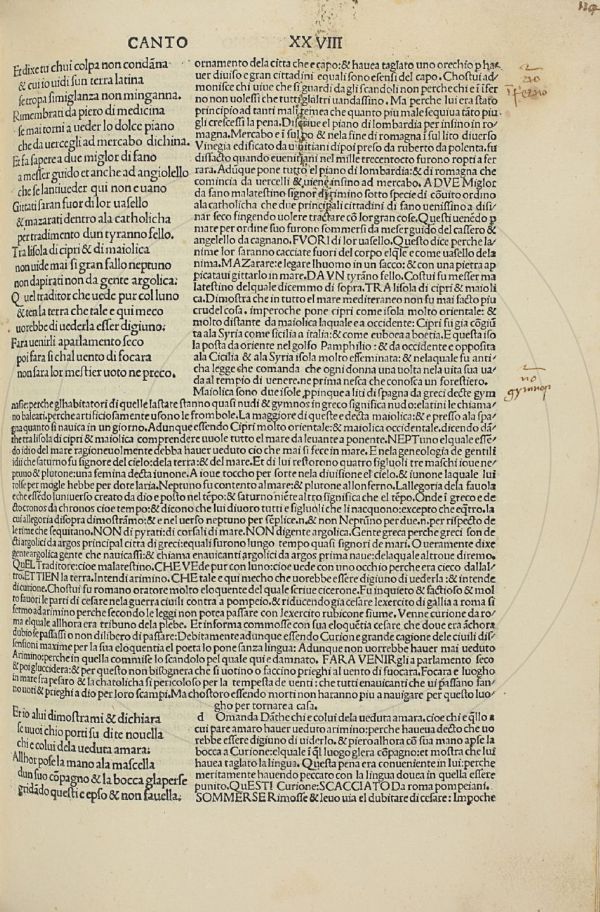 CANTO XXVIII
Et dixe tu chui colpa non condãna
& cui io uidi sun terra latina
se tropa simiglanza non minganna.
Rimembrati da piero di medicina
se mai torni a ueder lo dolce piano
che da uercegli ad mercabo dichina.
Et fa saper a due miglor di fano
a messer guido et anche ad angiolello
che se lantiueder qui non e uano
Gittati saran fuor di lor uasello
& mazarati dentro ala catholicha
per tradimento dun tyranno fello.
Tra lisola di cipri & di maiolica
non uide mai si gran fallo neptuno
non da pirati non da gente argolica:
Quel traditor che uede pur col luno
& ten la terra che tale e qui meco
uorebbe di uederla esser digiuno.
Fara uenirli a parlamento seco
poi fara si chal uento di focara
non fara lor mestier uoto ne preco.
ornamento dela citta che e capo: & hauea taglato uno orechio p ha
uer diuiso e gran cittadini equali sono esensi del capo. Chostui ad
monisce chi uiue che si guardi da gli scandoli non perche chi e ifer
no non uolessi che tutti glaltri uandassino. Ma perche lui era stato
principio ad tanti mali temea che quanto piu male sequiua tãto piu
gli crescessi la pena. Discriue el piano di lombardia per insino in ro
magna. Mercabo e i sul po & nela fine di romagna i sul lito diuerso
Vinegia edificato da uinitiani dipoi preso da ruberto da polenta. fu
disfacto quando euenitiani nel mille trecentocto furono ropti a fer
rara. Adũque pone tutto el piano di lombardia: & di romagna che
comincia da uercelli & uiene insino ad mercabo. A DVE Miglor
da fano malatestino signor darimino sotto specie di cõuito ordino
ala catholicha che due principali cittadini di fano uenissino a disi
nar seco fingendo uolere tractare cõ lor gran cose. Questi uenẽdo p
mare per ordine suo furono sommersi da meser guido del cassero &
angelello da cagnano. FVORI di lor uasello. Questo dice perche la
nime lor saranno cacciate fuori del corpo elqle e come uasello dela
nima. MAZarare: e legare lhuomo in un sacco: & con una pietra ap
picataui gittarlo in mare. DAVN tyrãno fello. Costui fu messer ma
latestino delquale dicemmo di sopra. TRA lisola di cipri & maioli
ca. Dimostra che in tutto el mare mediteraneo non fu mai facto piu
crudel cosa. imperoche pone cipri come isola molto orientale: &
molto distante da maiolica laquale e a occidente: Cipri fu gia cõgiũ
ta ala Syria come sicilia a italia: & come euboea a boetia. E questa iso
la posta da oriente nel golfo Pamphilio: & da occidente e opposita
ala Cicilia & ala Syria isola molto effeminata: & nelaquale fu anti
cha legge che comanda che ogni donna una uolta nela uita sua ua
da al tempio di uenere. ne prima nesca che conosca un forestiero.
Maiolica sono due isole, ppinque a liti di spagna da greci decte gym
nasie: perche gli habitatori di quelle la state stanno quasi nudi & gymnos in greco significa nudo: e latini le chiama
no baleari. perche artificiosamente usono le frombole. La maggiore di queste e decta maiolica: & e presso ala spa
gna quanto si nauica in un giorno. Adunque essendo Cipri molto orientale: & maiolica occidentale. dicendo dã
the tra lisola di cipri & maiolica comprendere uuole tutto el mare da leuante a ponente. NEPTuno el quale esse
do idio del mare ragioneuolmente debba hauer ueduto cio che mai si fece in mare. E nela geneologia de gentili
idii che saturno fu signore del cielo: dela terra: & del mare. Et di lui restorono quatro figluoli tre maschi ioue ne
ptuno & plutone: una femina decta iunone. A ioue toccho per sorte nela diuisione el cielo. & iunone laquale lui
tolse per mogle hebbe per dote laria. Neptuno fu contento al mare: & plutone allonferno. La llegoria dela fauola
e che essẽdo luniuerso creato da dio e posto nel tẽpo: & saturno niẽte altro significa che el tẽpo. Onde i greco e de
cto cronos da chronos cioe tempo: & dicono che lui diuoro tutti e figluoli che li nacquono: excepto che qtro. la
cui allegoria disopra dimostrãmo: & e nel uerso neptuno per sẽplice. n. & non Neptũno per due. n. per rispecto de
le rime che sequitano. NON di pyrati: di corsali di mare. NON di gente argolica. Gente greca perche greci son de
cti argolici da argos principal citta di greci: equali furono lungo tempo quasi signori de mari. O ueramente dixe
gente argolica gente che nauicassi: & chiama enauicanti argolici da argos prima naue: dela quale altroue diremo.
QuEL Traditore: cioe malatestino. CHE VEde pur con luno: cioe uede con uno occhio perche era cieco dallal
tro. ET TIEN la terra. Intendi arimino. CHE tale e qui mecho che uorebbe esser digiuno di uederla: & intende
di curione. Chostui fu romano oratore molto eloquente del quale scriue cicerone. Fu inquieto & factioso & mol
to fauori le parti di cesare nela guerra ciuili contra a pompeio. & riducendogia cesare lexercito di gallia a roma si
fermo ad arimino perche secondo le leggi non potea passare con lexercito rubicone fiume. Venne curione da ro
ma elquale allhora era tribuno dela plebe. Et informa commosse con sua eloquẽtia cesare che doue era ãchora
dubio se passassi o non dilibero di passare: Debitamente adunque essendo Curione e grande cagione dele ciuili dis
sensioni maxime per la sua eloquentia el poeta lo pone sanza lingua: Adunque non uorrebbe hauer mai ueduto
Arimino: perche in quella commise lo scandolo pel qual qui e damnato. FARA VENIR gli a parlamento seco
& poi gluccidera: & per questo non bisognera che si uotino o faccino prieghi al uento di fuocara. Focara e luogho
in mare fra pesaro & la chatholica si pericoloso per la tempesta de uenti: che tutti enauicanti che ui passano fan
no uoti & prieghi a dio per loro scampi. Ma chostoro essendo morti non haranno piu a nauigare per questo luo
gho per tornare a casa.
Et io a lui dimostrami & dichiara
se uuoi chio porti su di te nouella
chi e colui dela ueduta amara:
Allhor pose la mano ala mascella
dun suo cõpagno & la bocca glaperse
gridãdo questi e epso & non fauella.
d Omanda Dãthe chi e colui dela ueduta amara. cioe chi e qllo a
cui pare amaro hauer ueduto arimino: perche haueua decto che uo
rebbe essere digiuno di uiderlo. & pieroalhora cõ sua mano apse la
bocca a Curione: elquale i ql luogo glera cõpagno: et mostra che lui
hauea taglato la lingua. Questa pena era conueniente in lui: perche
meritamente hauendo peccato con la lingua doueua in quella essere
punito. QuESTI Curione: SCACCIATO Da roma pompeiani.
SOMMERSE Rimosse & leuo uia el dubitare di cesare: Impoche